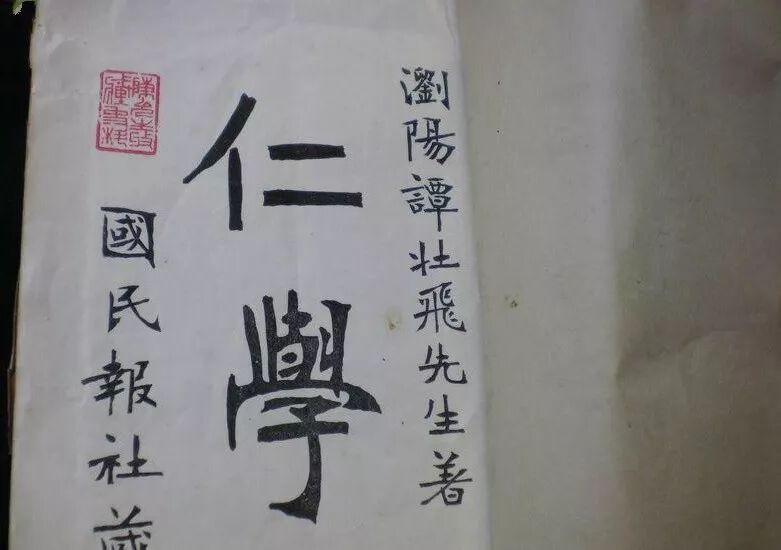 瀏陽譚壯飛先生著
仁學
國民報社藏